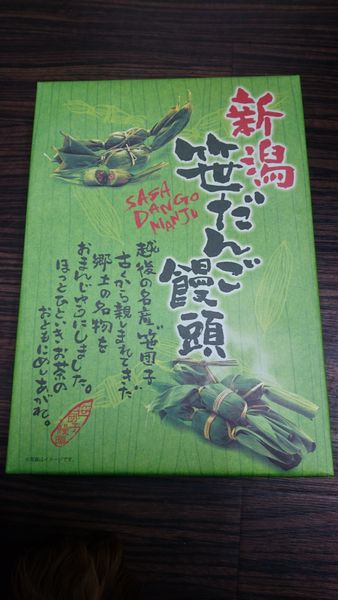 新潟
笹だんご饅頭
SASA
DANGO
MANJU
越後の名産“笹団子”
古くから親しまれてきた
郷土の名物を
おまんじゅうにしました。
ほっとひといきお茶の
おともにめしあがれ。
※写真はイメージです。